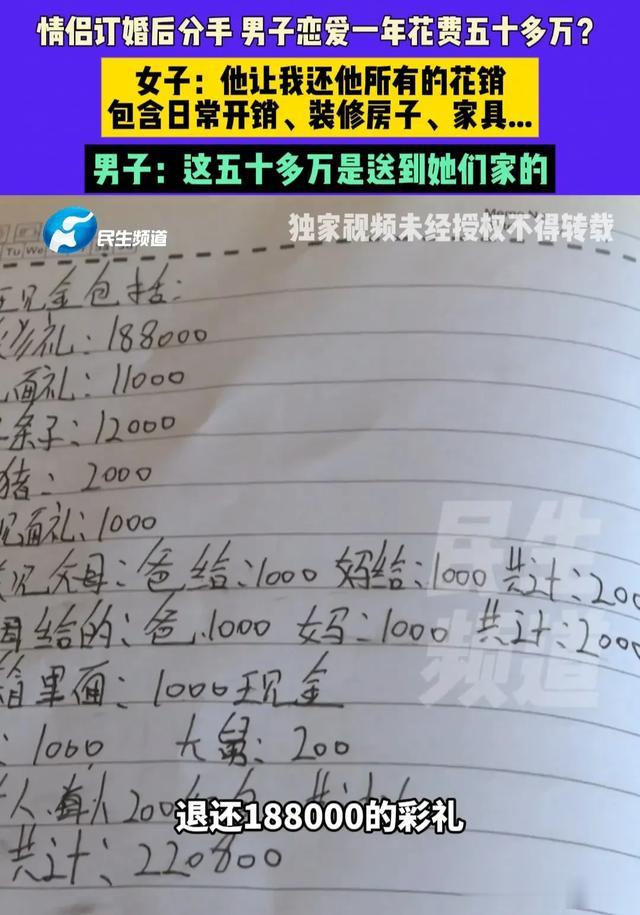 情侣订婚后分手 男子恋爱一年花费五十多万？
女子：他让我还他所有的花销
包含日常开销、装修房子、家具...
男子：这五十多万是送到她们家的
民生频道
独家视频未经授权不得转载
Tu We
现金包括：
彩礼：188000
面礼：11000
条子：12000
猪：2000
见面礼：1000
父母：爸给：1000 妈给：1000 共计：200
给的：爸：1000 妈：1000 共计：2000
箱里面：1000现金
：1000 大舅：200
人 200
民生
频道
退还188000的彩礼
共计：220800